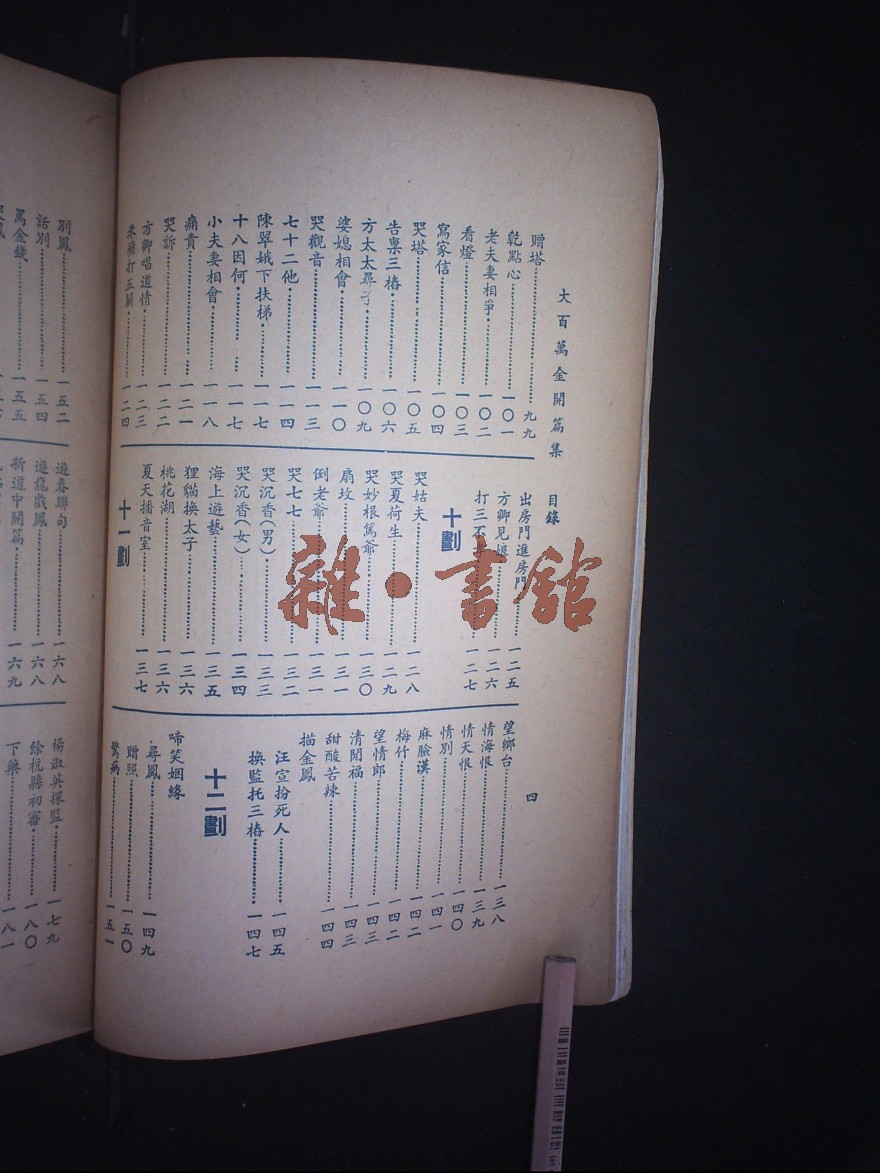 大百萬金開篇集
目錄
四
贈塔 九九
乾點心 一〇一
老夫妻相爭 一〇二
看燈 一〇三
寫家信 一〇四
哭塔 一〇五
告稟三樁 一〇六
方太太尋子 一〇九
婆媳相會 一一〇
哭觀音 一一三
七十二他 一一四
陳翠娥下扶梯 一一七
十八因何 一一七
小夫妻相會 一一八
痛責 一二一
哭訴 一二二
方卿唱道情 一二三
打五關 一二四
出房門進房門 一二五
方卿見娘 一二六
打三石 一二七
十劃
哭姑夫 一二八
哭夏荷生 一二九
哭妙根篤爺 一三〇
扇坟 一三一
倒老爺 一三一
哭七七 一三二
哭沉香(男) 一三三
哭沉香(女) 一三四
海上遊藝 一三五
狸貓換太子 一三六
桃花湖 一三六
夏天播音室 一三七
十一劃
望鄉台 一三八
情海恨 一三九
情天恨 一四〇
情別 一四一
麻臉漢 一四二
梅竹 一四二
望情郎 一四三
清閒福 一四三
甜酸苦辣 一四四
描金鳳
汪宣扮死人 一四五
換監托三樁 一四七
十二劃
啼笑姻緣
尋鳳 一四九
贈照 一五〇
驚病 一五一
別鳳 一五二
話別 一五四
罵金錢 一五五
遊春聯句 一六八
遊龍戲鳳 一六八
新道中開篇 一六九
楊淑英探監 一七九
餘杭縣初審 一八〇
下藥 一八一
雜·書館